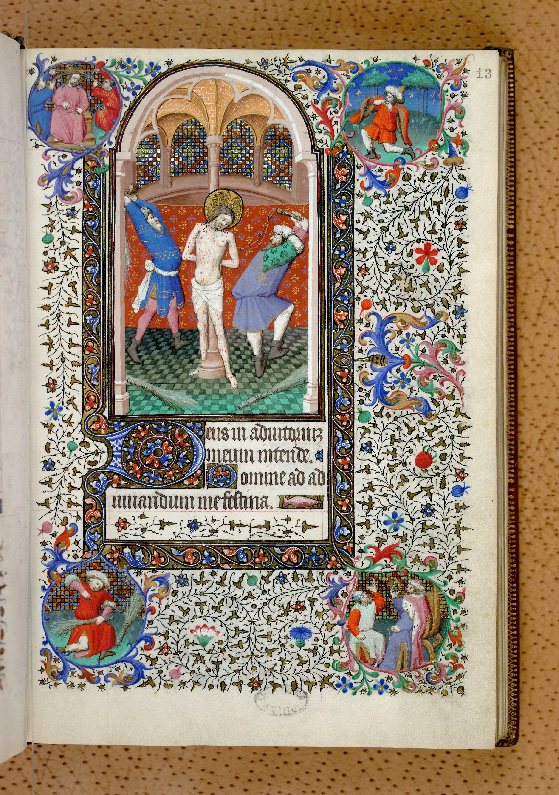 13
eus in adiutoriu
meum intende.
omine ad ad
iuuandum me festina.